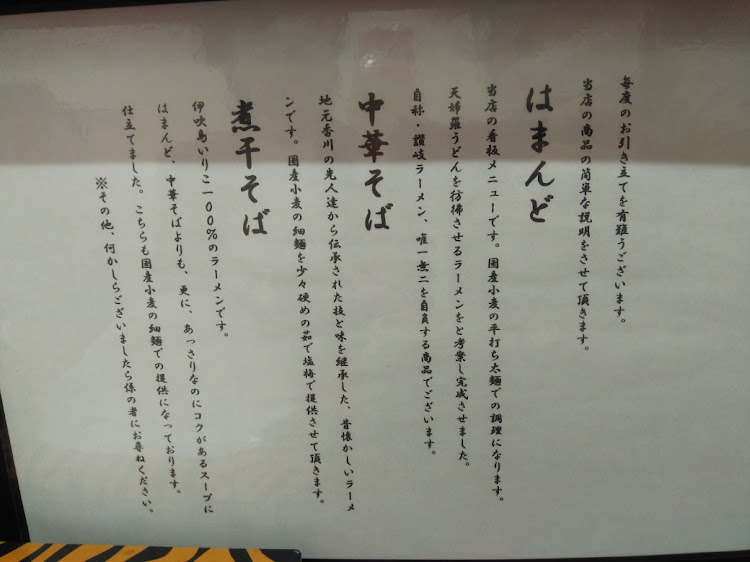 毎度のお引き立てを有難うございます。
当店の商品の簡単な説明をさせて頂きます。
はまんど
当店の看板メニューです。国産小麦の平打ち太麺での調理になります。
天婦羅うどんを彷彿させるラーメンをと考案し完成させました。
自称・讃岐ラーメン、唯一無二を自負する商品でございます。
中華そば
地元香川の先人達から伝承された技と味を継承した、昔懐かしいラーメ
ンです。国産小麦の細麺を少々硬めの茹で塩梅で提供させて頂きます。
煮干そば
伊吹島いりこ一00%のラーメンです。
はまんど、中華そばよりも、更に、あっさりなのにコクがあるスープに
仕立てました。こちらも国産小麦の細麺での提供になっております。
※その他、何かしらございましたら係の者にお尋ねください。